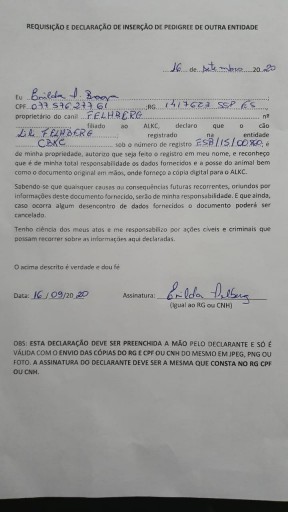 REQUISIÇÃO E DECLARAÇÃO DE INSERÇÃO DE PEDIGREE DE OUTRA ENTIDADE
16 de setembro 20 20
Eu Enilda
CPF RG 1417623 SSP ES
proprietário do canil FELHBERG nº
filiado ao ALKC, declaro que o cão
FELHBERG registrado na entidade
CBKC sob o número de registro e
de minha propriedade, autorizo que seja feito o registro em meu nome, e reconheço
que é de minha total responsabilidade os dados fornecidos e a posse do animal bem
como o documento original em mãos, onde forneço a cópia digital para o ALKC.
Sabendo-se que quaisquer causas ou consequências futuras recorrentes, oriundos por
informações deste documento fornecido, serão de minha responsabilidade. E que ainda,
caso ocorra algum desencontro de dados fornecidos o documento poderá ser
cancelado.
Tenho ciência dos meus atos e me responsabilizo por ações cíveis e criminais que
possam recorrer sobre as informações aqui declaradas.
O acima descrito é verdade e dou fé
Data: 16 / 09/20 20 Assinatura: Enilda
(Igual ao RG ou CNH)
OBS: ESTA DECLARAÇÃO DEVE SER PREENCHIDA A MÃO PELO DECLARANTE E SÓ É
VÁLIDA COM O ENVIO DAS CÓPIAS DO RG E CPF OU CNH DO MESMO EM JPEG, PNG OU
FOTO. A ASSINATURA DO DECLARANTE DEVE SER A MESMA QUE CONSTA NO RG CPF
OU CNH.